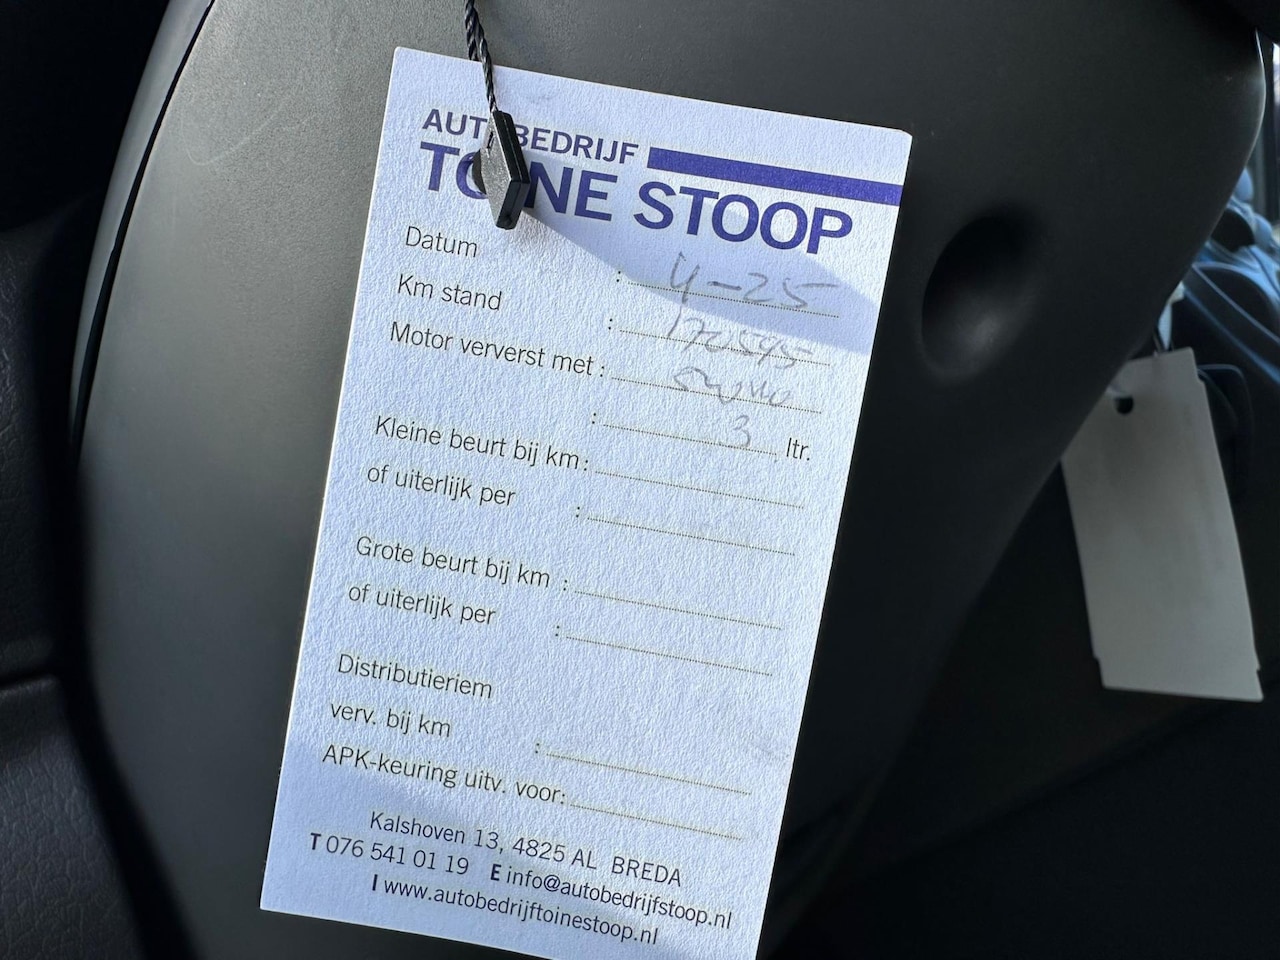 AUTOBEDRIJF
TOINE STOOP
Datum : 4-25
Km stand : 170595
Motor ververst met : 5W40
: 3 ltr.
Kleine beurt bij km :
of uiterlijk per :
Grote beurt bij km :
of uiterlijk per :
Distributieriem
verv. bij km :
APK-keuring uitv. voor:
Kalshoven 13, 4825 AL BREDA
T 076 541 01 19 E info@autobedrijfstoop.nl
I www.autobedrijftoinestoop.nl